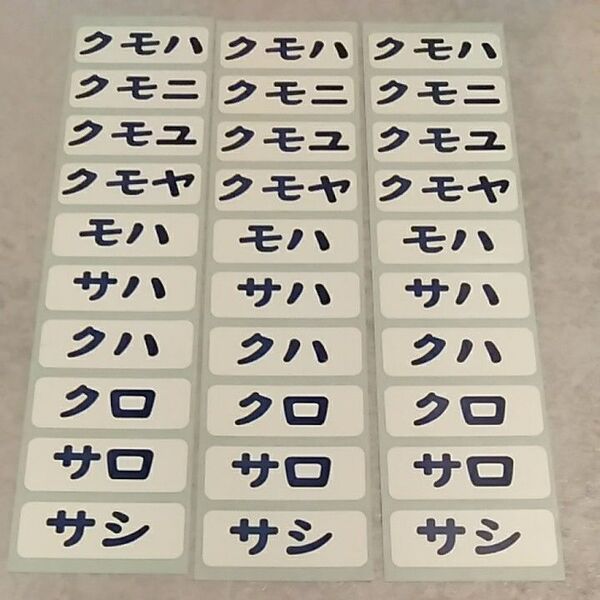 クモハ クモハ クモハ
クモニ クモニ クモニ
クモユ クモユ クモユ
クモヤ クモヤ クモヤ
モハ モハ モハ
サハ サハ サハ
クハ クハ クハ
クロ クロ クロ
サロ サロ サロ
サシ サシ サシ